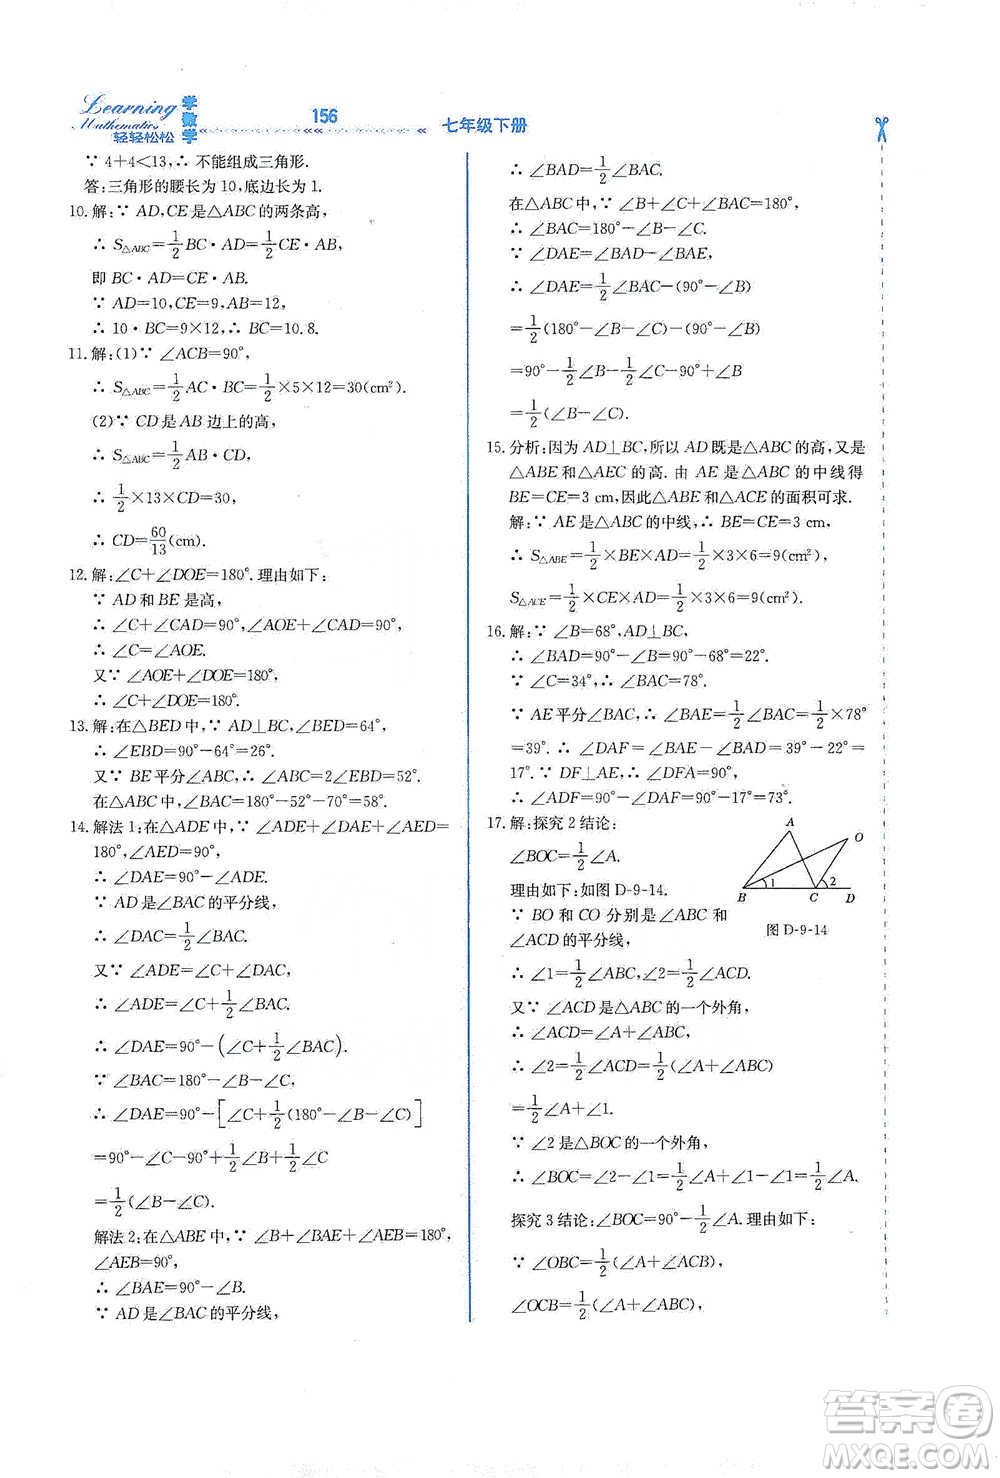 Learning
Mathematics
学数学
轻轻松松
156
七年级下册
∵ 4+4<13,∴ 不能组成三角形.
答:三角形的腰长为 10,底边长为 1.
10. 解:∵ AD,CE 是△ABC 的两条高,
∴ S△ABC=1/2 BC·AD=1/2 CE·AB,
即 BC·AD=CE·AB.
∵ AD=10,CE=9,AB=12,
∴ 10·BC=9×12,∴ BC=10.8.
11. 解:(1)∵ ∠ACB=90°,
∴ S△ABC=1/2 AC·BC=1/2×5×12=30(cm²).
(2)∵ CD 是 AB 边上的高,
∴ S△ABC=1/2 AB·CD,
∴ 1/2×13×CD=30,
∴ CD=60/13(cm).
12. 解:∠C+∠DOE=180°.理由如下:
∵ AD 和 BE 是高,
∴ ∠C+∠CAD=90°,∠AOE+∠CAD=90°,
∴ ∠C=∠AOE.
又∵ ∠AOE+∠DOE=180°,
∴ ∠C+∠DOE=180°.
13. 解:在△BED 中,∵ AD⊥BC,∠BED=64°,
∴ ∠EBD=90°-64°=26°.
又∵ BE 平分∠ABC,∴ ∠ABC=2∠EBD=52°.
在△ABC 中,∠BAC=180°-52°-70°=58°.
14. 解法 1:在△ADE 中,∵ ∠ADE+∠DAE+∠AED=
180°,∠AED=90°,
∴ ∠DAE=90°-∠ADE.
∵ AD 是∠BAC 的平分线,
∴ ∠DAC=1/2∠BAC.
又∵ ∠ADE=∠C+∠DAC,
∴ ∠ADE=∠C+1/2∠BAC.
∴ ∠DAE=90°-(∠C+1/2∠BAC).
∵ ∠BAC=180°-∠B-∠C,
∴ ∠DAE=90°-[∠C+1/2(180°-∠B-∠C)]
=90°-∠C-90°+1/2∠B+1/2∠C
=1/2(∠B-∠C).
解法 2:在△ABE 中,∵ ∠B+∠BAE+∠AEB=180°,
∠AEB=90°,
∴ ∠BAE=90°-∠B.
∵ AD 是∠BAC 的平分线,
∴ ∠BAD=1/2∠BAC.
在△ABC 中,∵ ∠B+∠C+∠BAC=180°,
∴ ∠BAC=180°-∠B-∠C.
∵ ∠DAE=∠BAD-∠BAE,
∴ ∠DAE=1/2∠BAC-(90°-∠B)
=1/2(180°-∠B-∠C)-(90°-∠B)
=90°-1/2∠B-1/2∠C-90°+∠B
=1/2(∠B-∠C).
15. 分析:因为 AD⊥BC,所以 AD 既是△ABC 的高,又是
△ABE 和△AEC 的高.由 AE 是△ABC 的中线得
BE=CE=3 cm,因此△ABE 和△ACE 的面积可求.
解:∵ AE 是△ABC 的中线,∴ BE=CE=3 cm,
∴ S△ABE=1/2×BE×AD=1/2×3×6=9(cm²),
S△ACE=1/2×CE×AD=1/2×3×6=9(cm²).
16. 解:∵ ∠B=68°,AD⊥BC,
∴ ∠BAD=90°-∠B=90°-68°=22°.
∵ ∠C=34°,∴ ∠BAC=78°.
∵ AE 平分∠BAC,∴ ∠BAE=1/2∠BAC=1/2×78°
=39°.∴ ∠DAF=∠BAE-∠BAD=39°-22°=
17°.∵ DF⊥AE,∴ ∠DFA=90°,
∴ ∠ADF=90°-∠DAF=90°-17°=73°.
17. 解:探究 2 结论:
∠BOC=1/2∠A.
理由如下:如图 D-9-14.
∵ BO 和 CO 分别是∠ABC 和
∠ACD 的平分线,
A
O
1
2
B
C
D
图 D-9-14
∴ ∠1=1/2∠ABC,∠2=1/2∠ACD.
又∵ ∠ACD 是△ABC 的一个外角,
∴ ∠ACD=∠A+∠ABC,
∴ ∠2=1/2∠ACD=1/2(∠A+∠ABC)
=1/2∠A+∠1.
∵ ∠2 是△BOC 的一个外角,
∴ ∠BOC=∠2-∠1=1/2∠A+∠1-∠1=1/2∠A.
探究 3 结论:∠BOC=90°-1/2∠A.理由如下:
∵ ∠OBC=1/2(∠A+∠ACB),
∠OCB=1/2(∠A+∠ABC),
答案圈
MXQE.COM